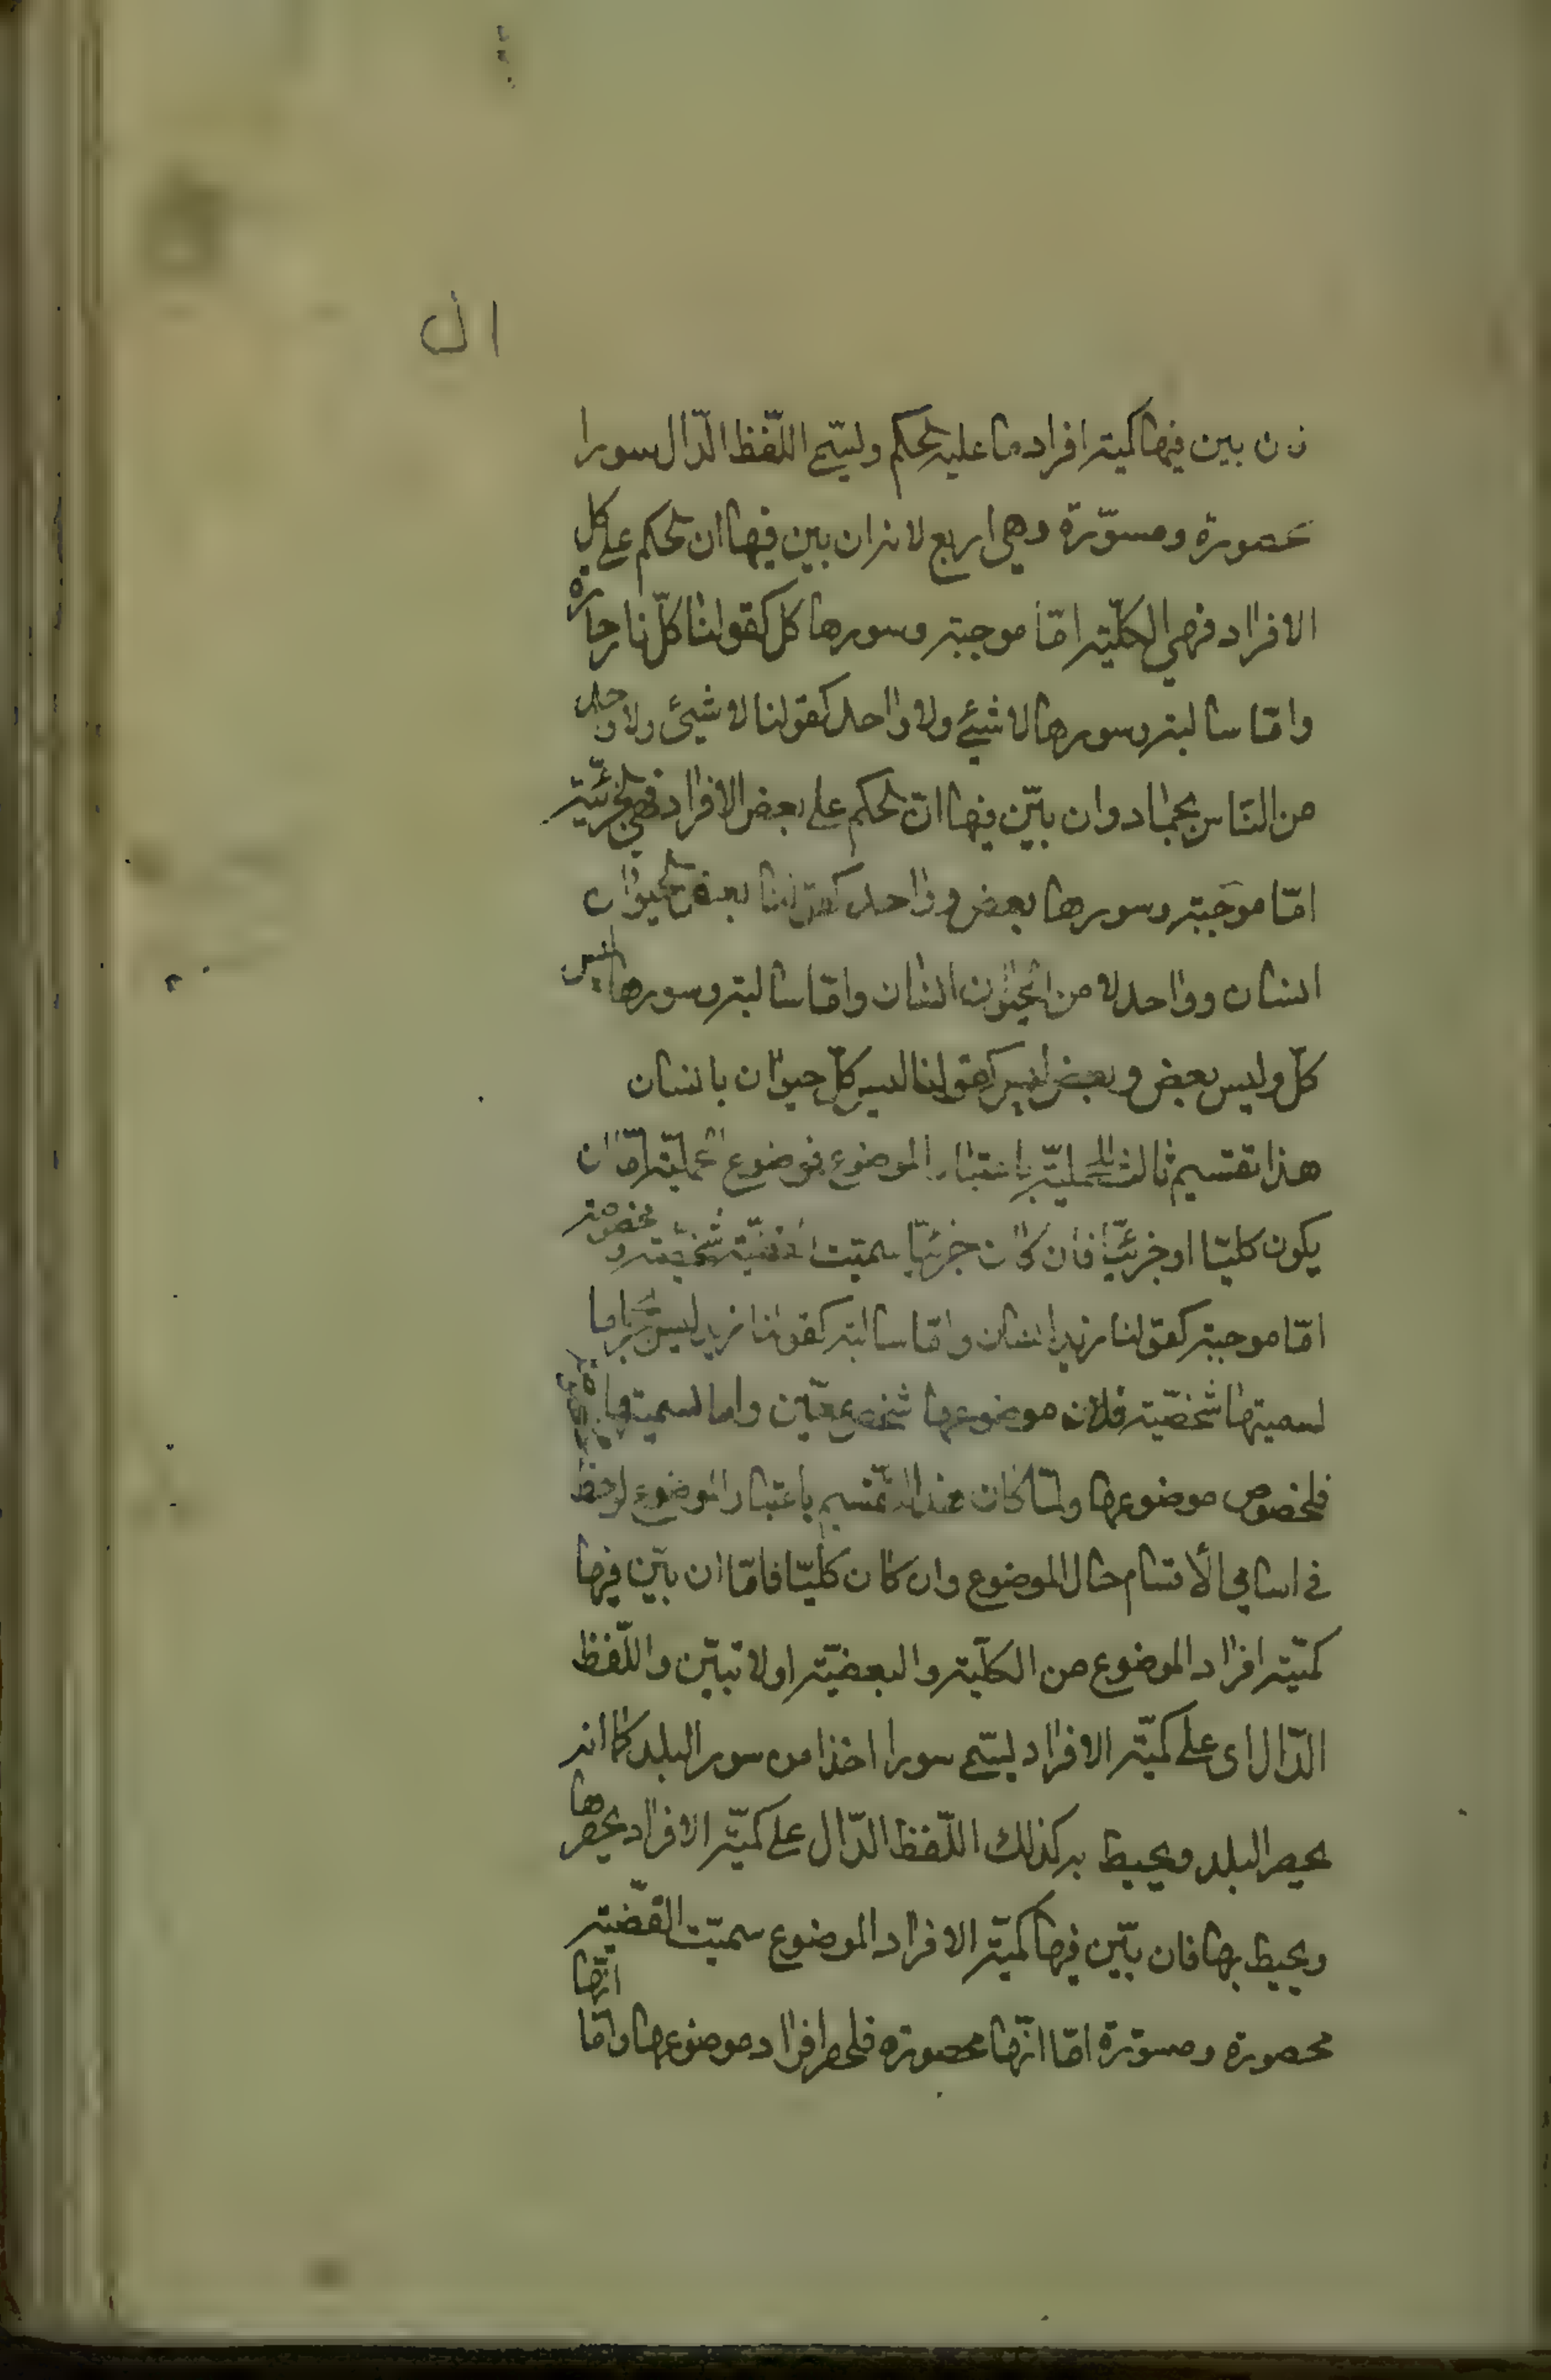 ال
ن بين فيها كمية افراد ما عليه الحكم وليسمّى اللّفظ الدّال سورا
محصورة ومسوّرة وهي اربع لانه ان بين فيها ان الحكم على كل
الافراد فهي الكلّية امّا موجبة وسورها كل كقولنا كلّ نار حارة
وامّا سالبة وسورها لا شيئ ولا واحد كقولنا لا شيئ ولا واحد
من النّاس بجماد وان بيّن فيها انّ الحكم على بعض الافراد فهي الجزئيّة
امّا موجبة وسورها بعض وواحد كقولنا بعض الحيوان
انسان وواحد من الحيوان انسان وامّا سالبة وسورها ليس
كلّ وليس بعض وبعض ليس كقولنا ليس كلّ حيوان بانسان
هذا تقسيم ثالث للحمليّة باعتبار الموضوع فموضوع الحمليّة امّا ان
يكون كليّا او جزئيّا فان كان جزئيّا سميّت القضيّة شخصيّة ومخصوصة
امّا موجبة كقولنا زيد انسان وامّا سالبة كقولنا زيد ليس بحجر اما
تسميتها شخصّية فلان موضوعها شخص معيّن واما تسميتها
فلخصوص موضوعها ولمّا كان هذا التّقسيم باعتبار الموضوع لوحظ
في اسامي الأقسام حال الموضوع وان كان كليّا فامّا ان بيّن فيها
كمّية افراد الموضوع من الكلّية والبعضيّة اولا تبيّن واللّفظ
الدّال اى على كميّة الافراد ليسمّى سورا اخذا من سور البلد كما انه
يحصر البلد ويحيط به كذلك اللّفظ الدّال على كميّة الافراد يحصرها
ويحيط بها فان بيّن فيها كميّة الافراد الموضوع سميّت القضّية
محصورة ومسوّرة امّا انّها محصورة فلحصر افراد موضوعها وامّا انّها